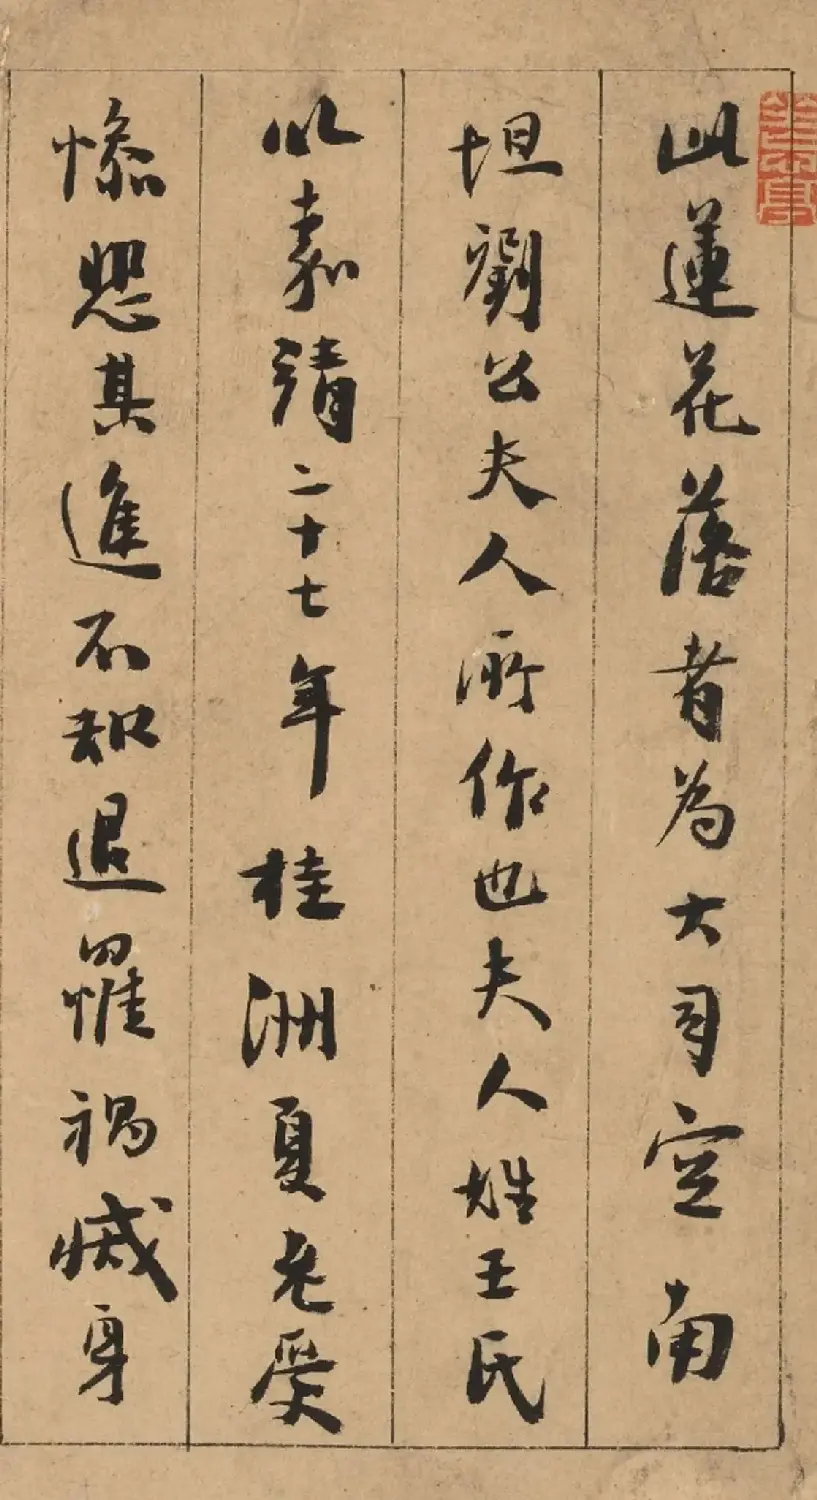 此蓮花落者為大司空南
坦劉公夫人所作也夫人姓王氏
以嘉靖二十七年桂洲夏老受
慘愍其進不知退罹禍滅身